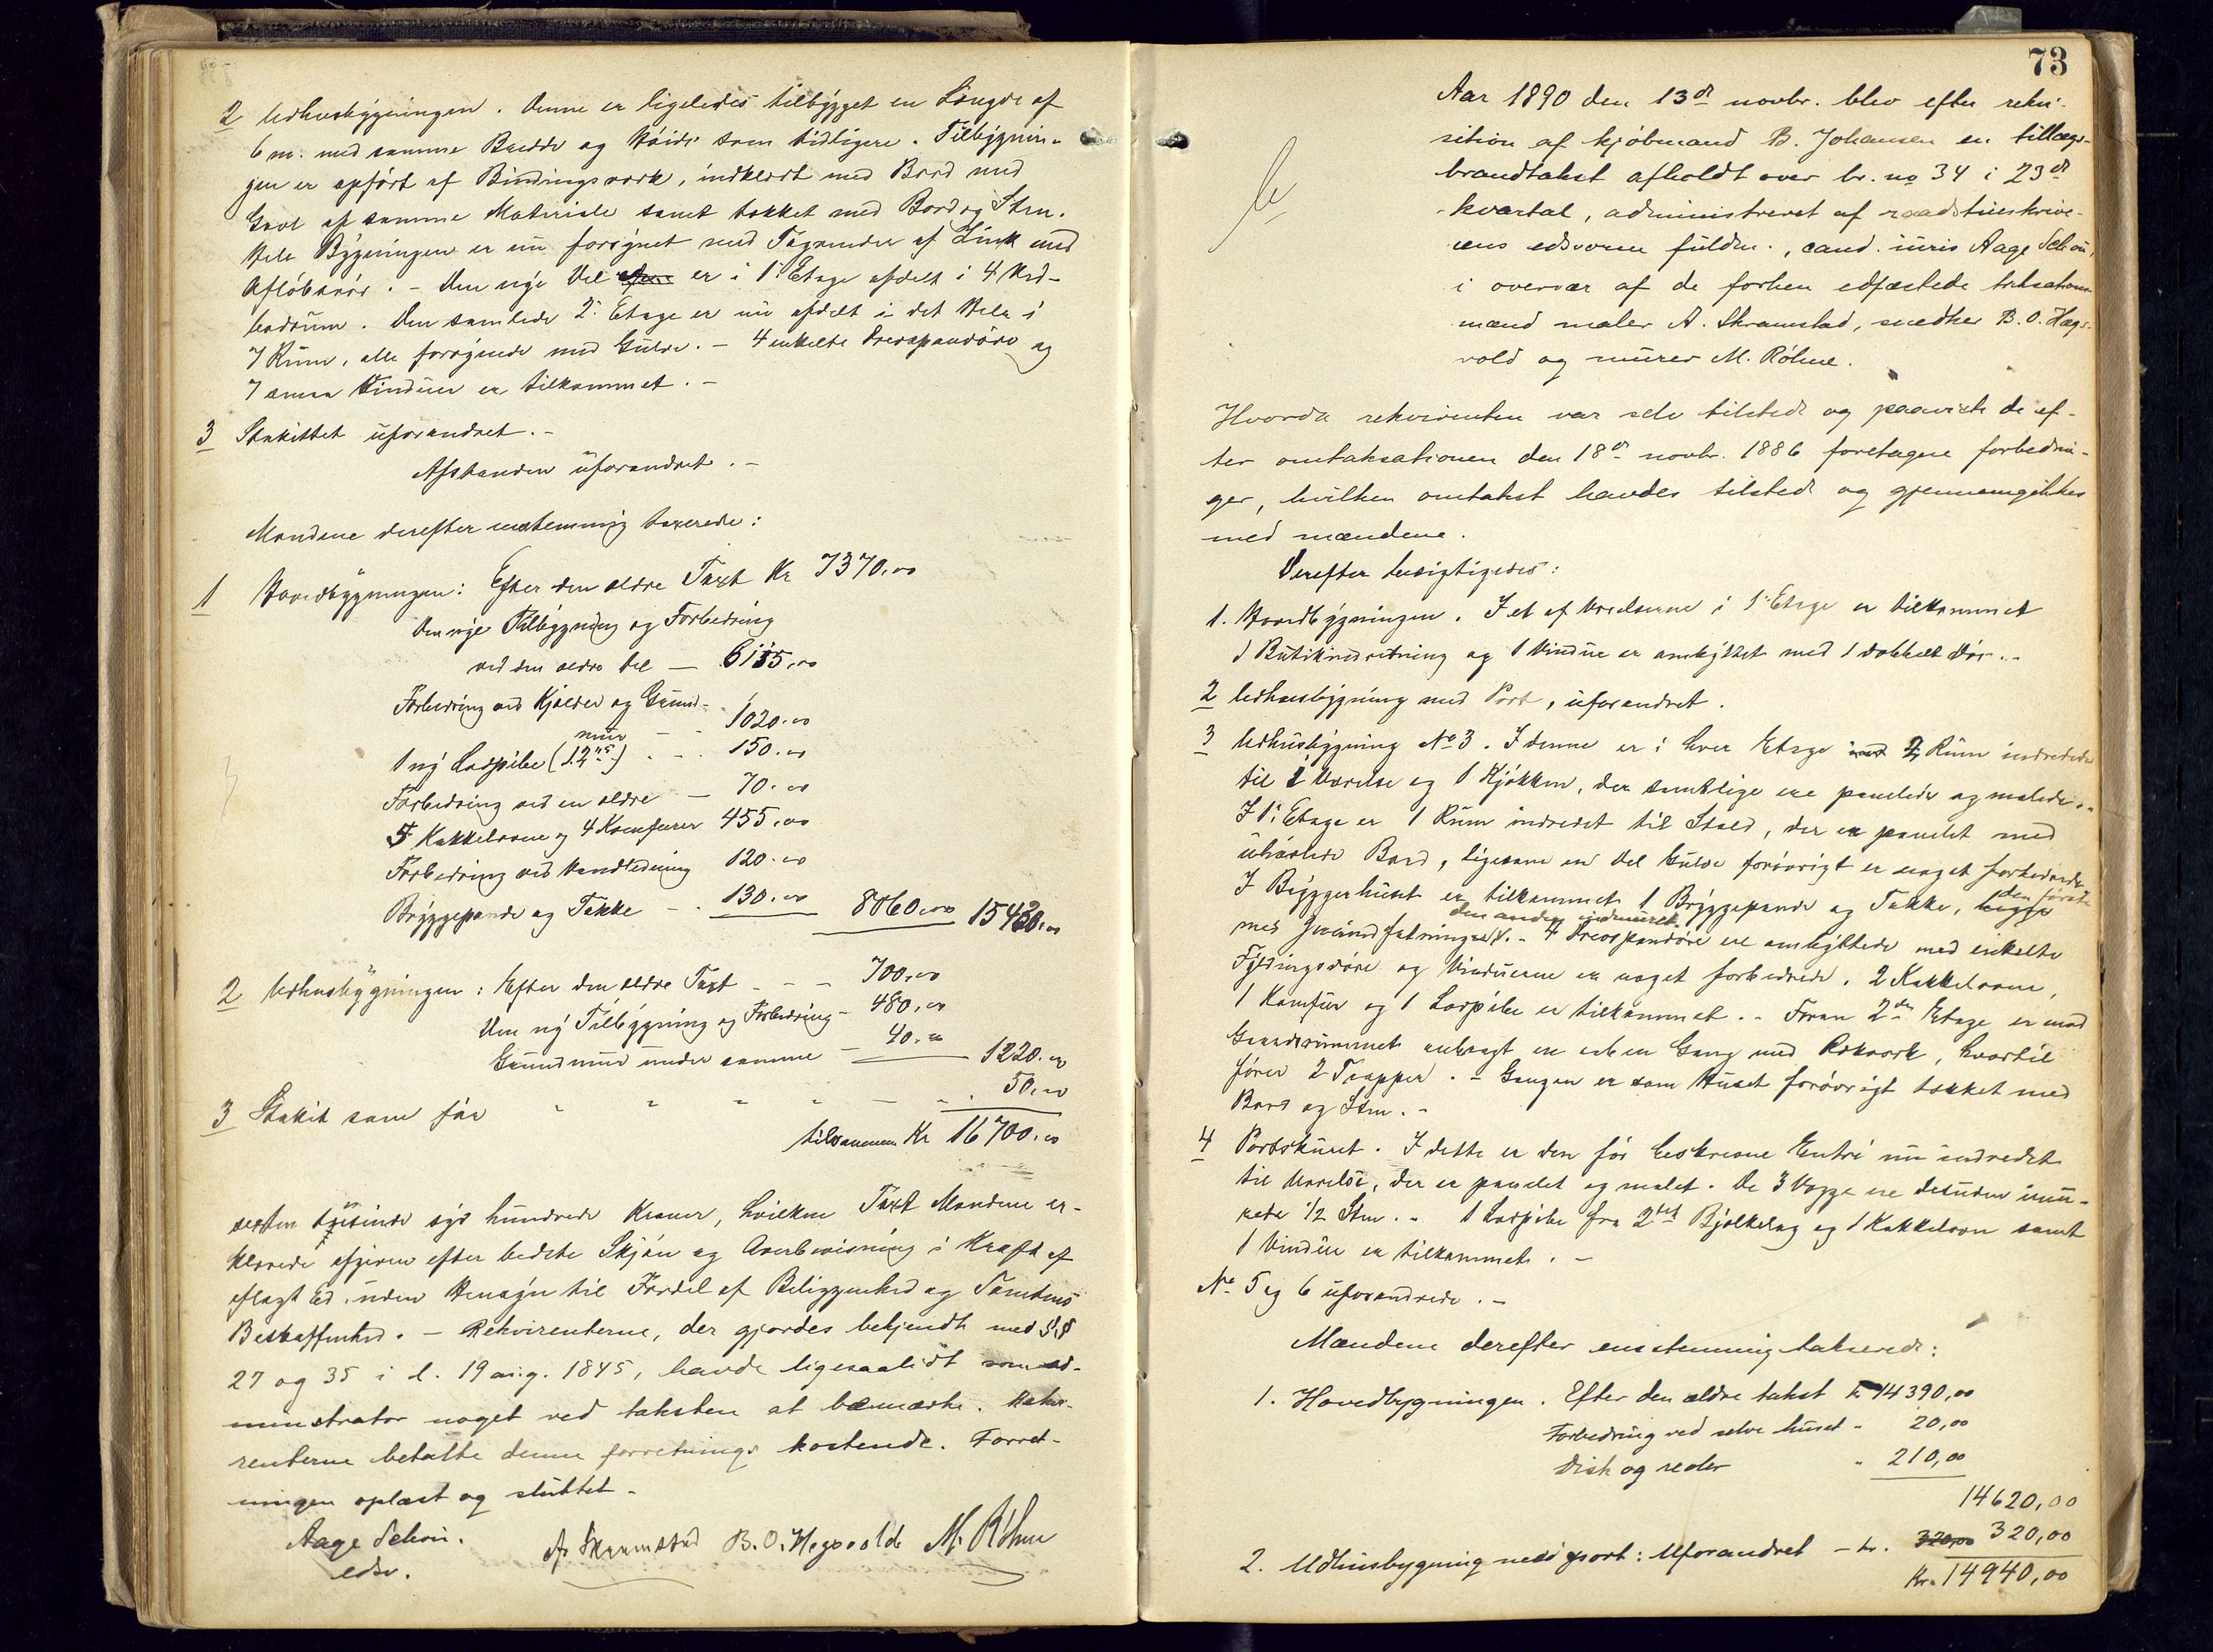 2 Udhusbygningen. Denne er ligeledes tilbygget en Længde af
6 m. med samme Bredde og Høide som tidligere. Tilbygnin-
gen er opført af Bindingsværk, indklædt med Bord med
Gavl af samme Materiale samt tækket med Bord og Sten.
Hele Bygningen er nu forsynet med Tagrender af Zink med
Afløbsrør. - Den nye Del er i 1. Etage afdelt i 4 Ved-
bodrum. Den samlede 2. Etage er nu afdelt i det Hele i
7 Rum, alle forsynede med Gulve. - 4 enkelte Presspandøre og
7 smaa Vinduer er tilkommet. -
3 Stakittet uforandret. -
Afstanden uforandret. -
Mændene derefter enstemmig taxerede:
1 Hovedbygningen: Efter den ældre Taxt Kr 7370.00
Den nye Tilbygning og Forbedring
ved den ældre Del - 6115.00
Forbedring ved Kjælder og Grund-
mur - - 1020.00
1 ny Ladpibe (12") - - 150.00
Forbedring ved en ældre - 70.00
5 Kakkelovne og 4 Komfurer 455.00
Forbedring ved Vandledning 120.00
Bryggepande og Takke - 130.00 8060.00 15430.00
2 Udhusbygningen: Efter den ældre Taxt - - - 700.00
Den ny Tilbygning og Forbedring - 480.00
Grundmur under samme - 40.00 1220.00
3 Stakit som før - - - - - - - 50.00
tilsammen Kr 16700.00
sexten tusinde syv hundrede Kroner, hvilken Taxt Mændene er-
klærede afgiven efter bedste Skjøn og Overbevisning i Kraft af
aflagt Ed, uden Hensyn til Fordel af Beliggenhed og Tomtens
Beskaffenhed. - Rekvirenterne, der gjordes bekjendt med §§
27 og 35 i l. 19 aug. 1845, havde ligesaalidt som ad-
ministrator noget ved taksten at bemærke. Rekvi-
renterne betalte denne forretnings kostende. Forret-
ningen oplæst og sluttet -
Aage Schou. A. Skramstad B. O. Hegsvold M. Røhne
edsv.
73
Aar 1890 den 13de novbr. blev efter rekvi-
sition af kjøbmand B. Johansen en tillægs-
brandtakst afholdt over br. no 34 i 23de
kvartal, administreret af raadstueskrive-
rens edsvorne fuldm., cand. juris Aage Schou,
i overvær af de forhen edfæstede taksations-
mænd maler A. Skramstad, snedker B. O. Hægs-
vold og murer M. Røhne.
Hvorda rekvirenten var selv tilstede og paaviste de ef-
ter omtaksationen den 18de novbr. 1886 foretagne forbedrin-
ger, hvilken omtakst havdes tilstede og gjennemgikkes
med mændene.
Derefter besigtigedes:
1. Hovedbygningen. I et af Værelserne i 1. Etage er tilkommet
1 Butikindretning og 1 Vindue er ombyttet med 1 dobbelt Dør. -
2 Udhusbygning med Port, uforandret.
3 Udhusbygning No 3. I denne er i hver Etage 2 Rum indredede
til 1 Værelse og 1 Kjøkken, der samtlige ere panelede og malede. -
I 1. Etage er 1 Rum indredet til Stald, der er panelet med
uhøvlede Bord, ligesom en Del Gulve forøvrigt er noget forbedrede
I Bryggerhuset er tilkommet 1 Bryggepande og Takke, den første
med Jernindfatning, den anden indmuret. - 4 Presspandøre ere ombyttede med enkelte
Fyldingsdøre og Vinduerne er noget forbedrede. 2 Kakkelovne,
1 Komfur og 1 Ladpibe er tilkommet. - Foran 2den Etage er mod
Gaardsrummet anbragt en aaben Gang med Rækværk, hvortil
fører 2 Trapper. - Gangen er som Huset forøvrigt tækket med
Bord og Sten. -
4 Portskuret. I dette er den før beskrevne Entré nu indredet
til Værelse, der er panelet og malet. De 3 Vægge ere desuden inmu-
rede 1/2 Sten. - 1 Ladpibe fra 2det Bjelkelag og 1 Kakkelovn samt
1 Vindue er tilkommet. -
No 5 og 6 uforandrede. -
Mændene derefter enstemmig takserede:
1. Hovedbygningen. Efter den ældre takst kr 14390,00
Forbedring ved selve huset " 20,00
Disk og reoler " 210,00
14620,00
2. Udhusbygning med port: Uforandret - kr. 320,00 320,00
Kr. 14940,00